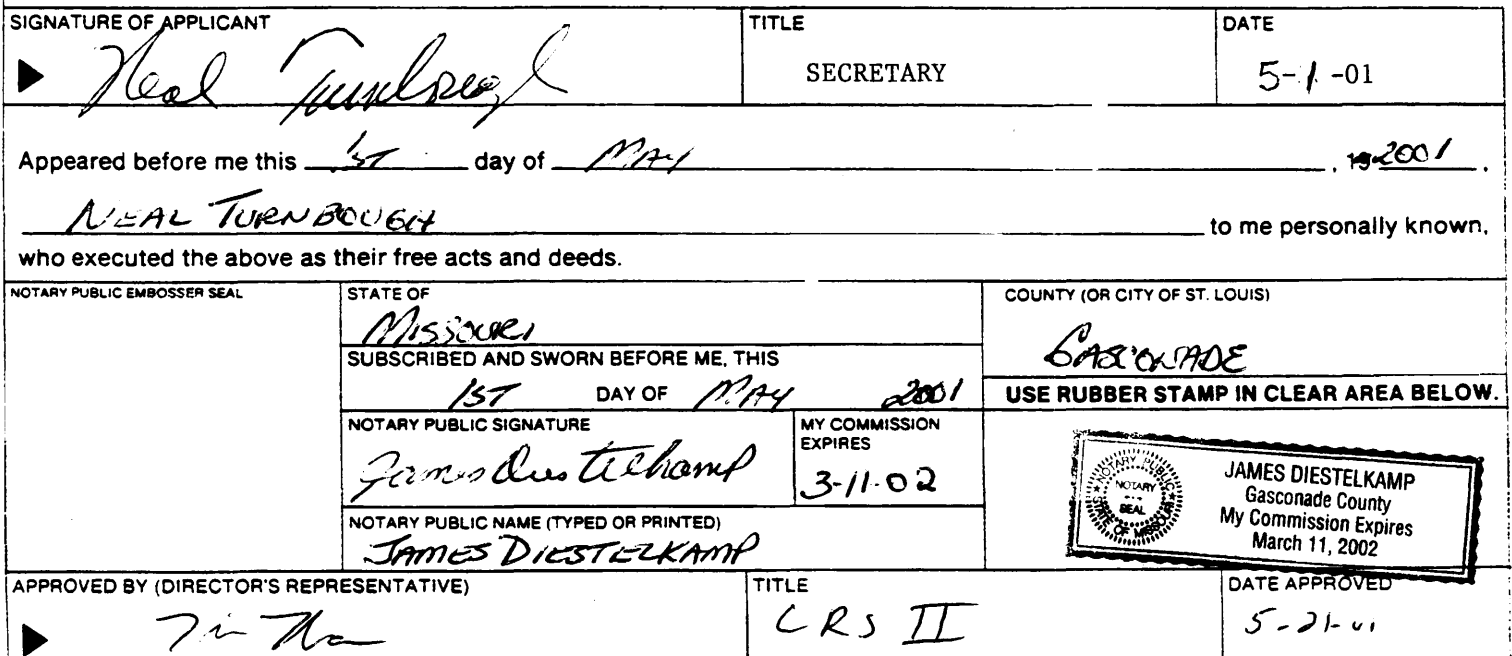 SIGNATURE OF APPLICANT TITLE DATE
Neal Turnbough SECRETARY 5-1-01
Appeared before me this 1ST day of MAY , 19 2001 .
NEAL TURNBOUGH to me personally known,
who executed the above as their free acts and deeds.
NOTARY PUBLIC EMBOSSER SEAL STATE OF COUNTY (OR CITY OF ST. LOUIS)
MISSOURI GASCONADE
SUBSCRIBED AND SWORN BEFORE ME, THIS
1ST DAY OF MAY 2001
USE RUBBER STAMP IN CLEAR AREA BELOW.
NOTARY PUBLIC SIGNATURE MY COMMISSION
EXPIRES
James Diestelkamp 3-11-02
NOTARY PUBLIC NAME (TYPED OR PRINTED)
JAMES DIESTELKAMP
NOTARY PUBLIC
NOTARY
SEAL
STATE OF MISSOURI
JAMES DIESTELKAMP
Gasconade County
My Commission Expires
March 11, 2002
APPROVED BY (DIRECTOR'S REPRESENTATIVE) TITLE DATE APPROVED
CRS II 5-21-01